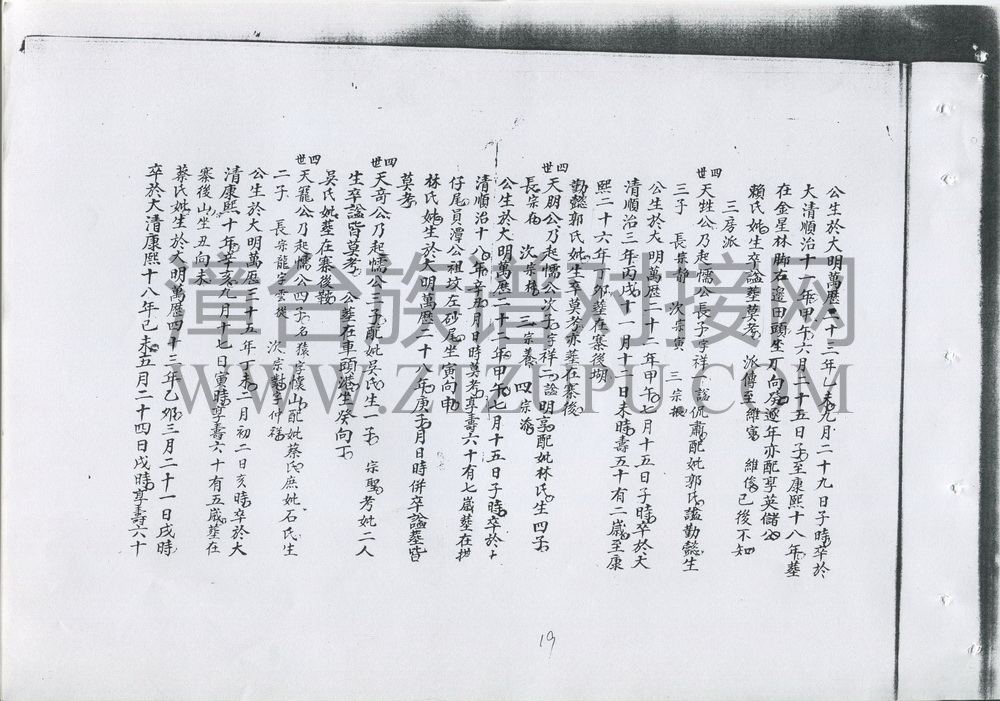 公生於大明萬歷二十三年乙未九月二十九日子時卒於
大清順治十一年甲午六月二十五日子至康熙十八年塟
在金星林脚右邉田頭坐丁向癸逐年亦配享英儲公
賴氏妣生卒諡塟莫考 派傳至維寓 維俊已後不知
三房派
四世天甡公乃起懦公長子字祥一諡侃肅配妣郭氏諡勤懿生
三子 長宗靜 次宗寅 三宗振
公生於大明萬歷二十二年甲午七月十五日子時卒於大
清順治三年丙戌十一月十二日未時壽五十有二歲至康
熙二十六年丁卯塟在寨後塘
勤懿郭氏妣生卒莫考亦塟在寨後
四世天朋公乃起懦公次子字祥二諡明享配妣林氏生四子
長宗 次宗 三宗養 四宗
公生於大明萬歷二十二年甲午七月十五日子時卒於大
清順治十八年辛丑月日時莫考享壽六十有七歲塟在
仔尾員潭公祖坟左砂尾坐寅向申
林氏妣生於大明萬歷二十八年庚子月日時併卒諡塟皆
莫考
四世天奇公乃起懦公三子配妣吳氏生一子 宗聖考妣二人
生卒諡皆莫考 公塟在車頭 坐癸向丁
吳氏妣塟在寨後鞍
四世天寵公乃起懦公四子名猿字懷山配妣蔡氏庶妣石氏生
二子 長宗龍字雲從 次宗 字仲
公生於大明萬歷三十五年丁未二月初二日亥時卒於大
清康熙十年辛亥九月十七日寅時享壽六十有五歲塟在
寨後山坐丑向未
蔡氏妣生於大明萬歷四十三年乙卯三月二十一日戌時
卒於大清康熙十八年己未五月二十四日戌時享壽六十
漳台族谱对接网
WWW.ZTZUPU.COM
19